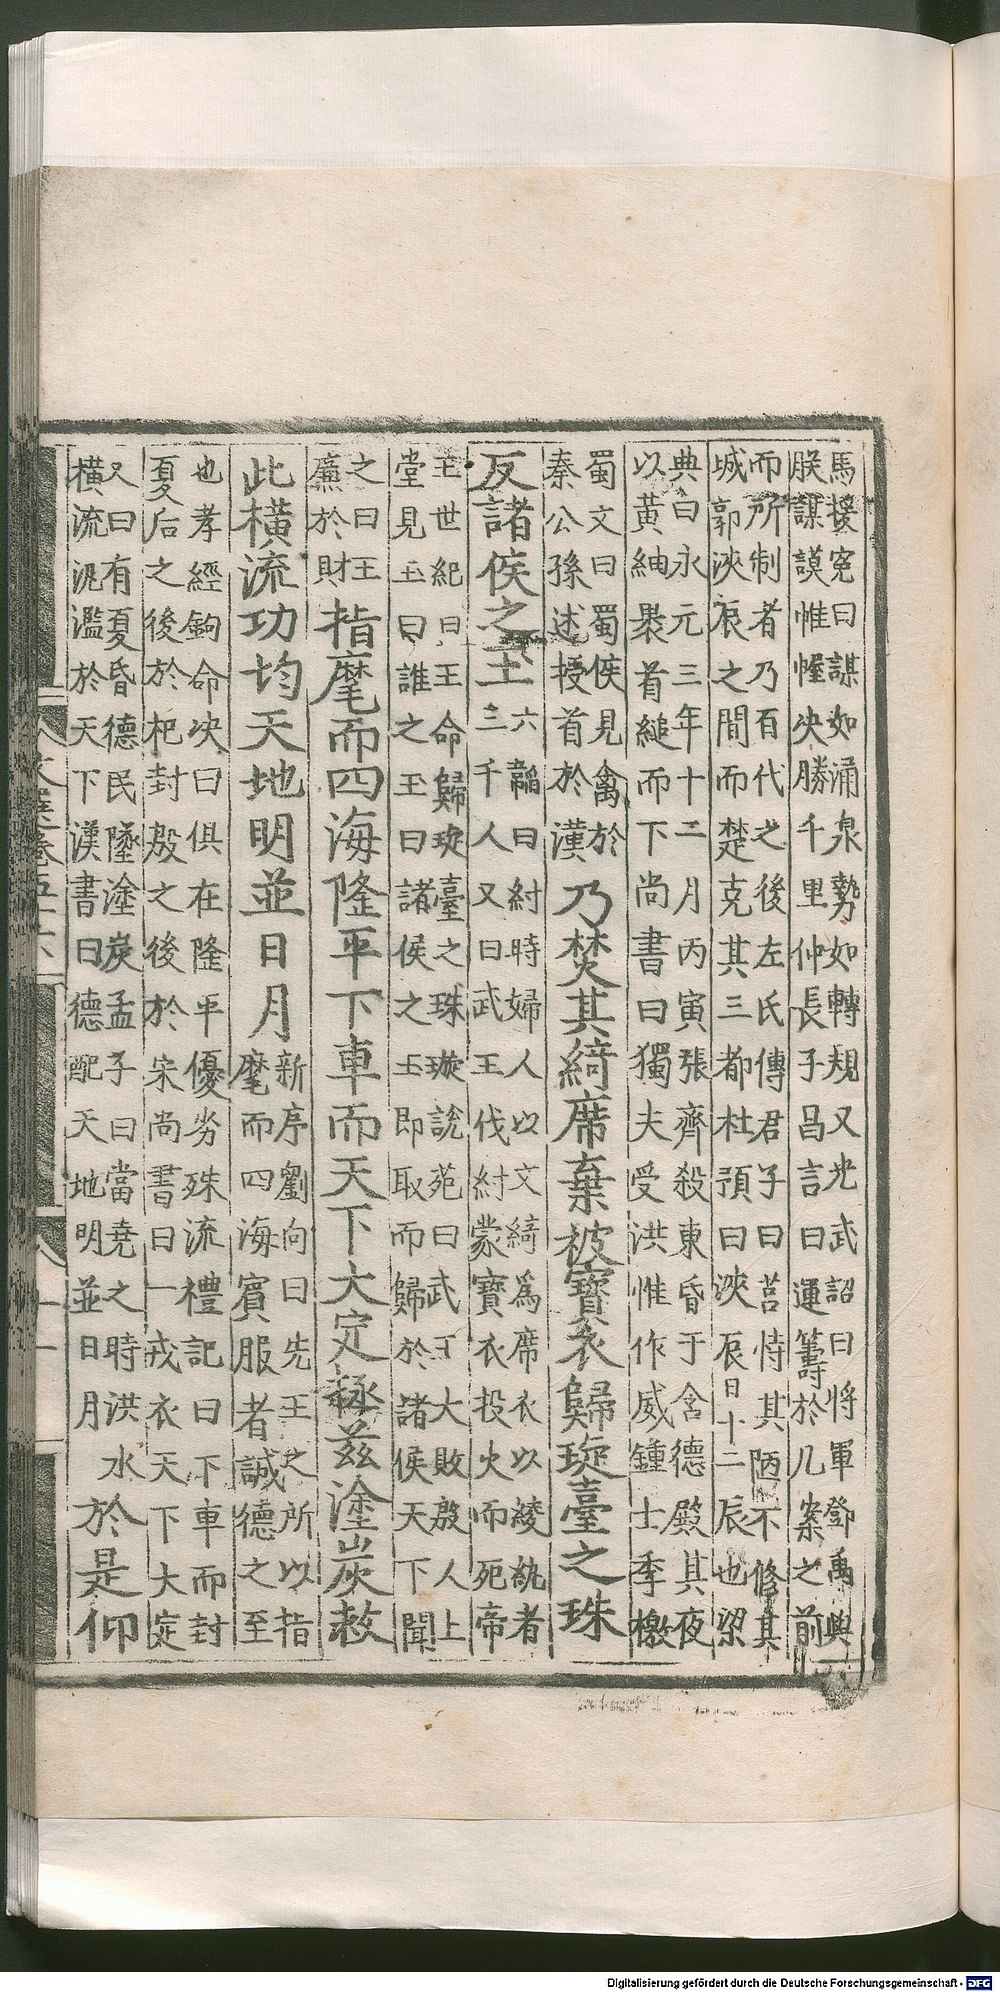 馬援寃曰謀如涌泉勢如轉規又光武詔曰將軍鄧禹與
朕謀謨惟幄决勝千里仲長子昌言曰運籌於几案之前
而所制者乃百代之後左氏傳君子曰莒恃其陋不修其
城郭浹辰之間而楚克其三都杜預曰浹辰日十二辰也梁
典曰永元三年十二月丙寅張齊殺東昏于含德殿其夜
以黃紬褁首縋而下尚書曰獨夫受洪惟作威鍾士季檄
蜀文曰蜀侯見禽於
秦公孫述授首於漢
乃焚其綺席棄彼寶衣歸琁臺之珠
反諸侯之玉
六韜曰紂時婦人以文綺爲席衣以綾紈者
三千人又曰武王伐紂蒙寶衣投火而死帝
王世紀曰王命歸琁臺之珠璇說苑曰武王大敗殷人上
堂見玉曰誰之玉曰諸侯之玉即取而歸於諸侯天下聞
之曰王
廉於財
指麾而四海隆平下車而天下大定拯茲塗炭救
此橫流功均天地明並日月
新序劉向曰先王之所以指
麾而四海賓服者誠德之至
也孝經鉤命决曰俱在隆平優劣殊流禮記曰下車而封
夏后之後於杞封殷之後於宋尚書曰一戎衣天下大定
又曰有夏昏德民墜塗炭孟子曰當堯之時洪水
橫流氾濫於天下漢書曰德配天地明並日月
於是仰
文選卷五十六
Digitalisierung gefördert durch die Deutsche Forschungsgemeinschaft - DFG